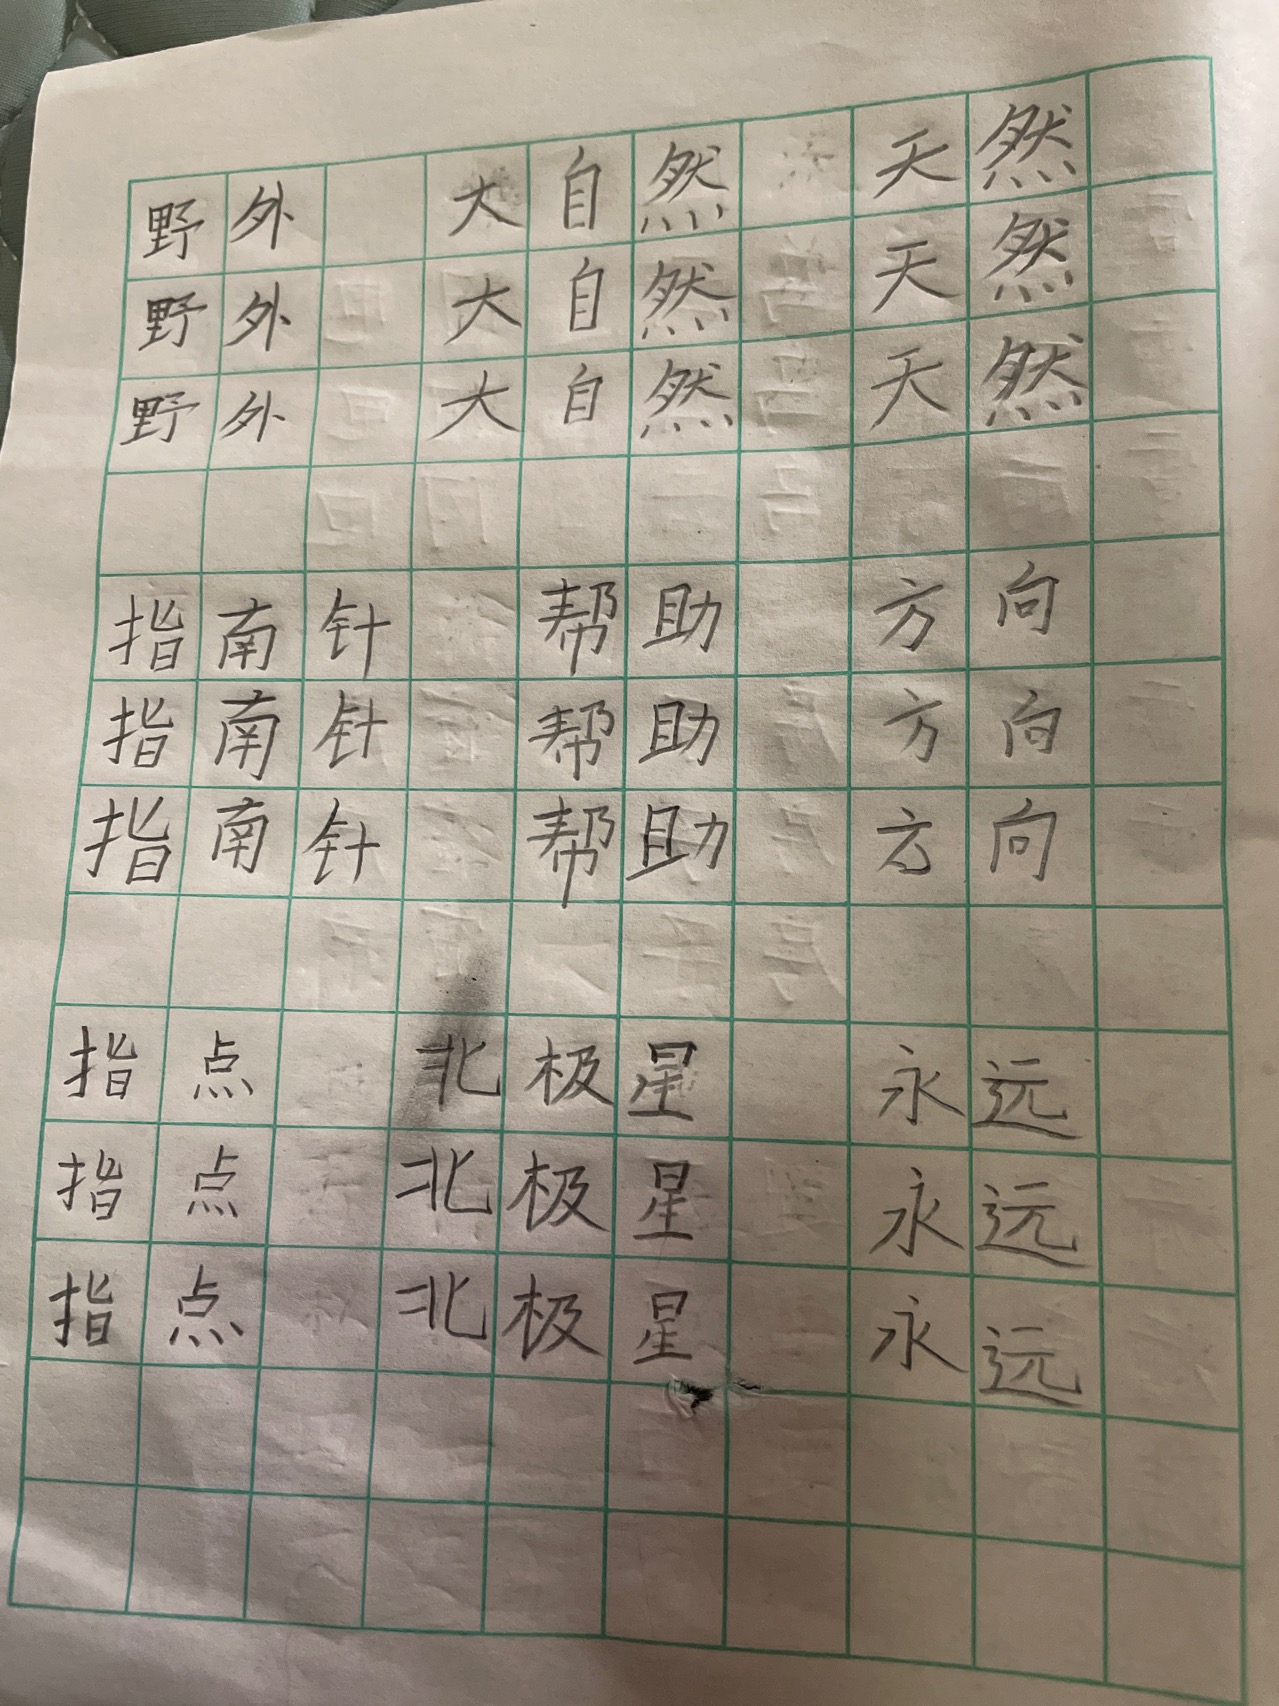 野外 大自然 天然
野外 大自然 天然
野外 大自然 天然
指南针 帮助 方向
指南针 帮助 方向
指南针 帮助 方向
指点 北极星 永远
指点 北极星 永远
指点 北极星 永远